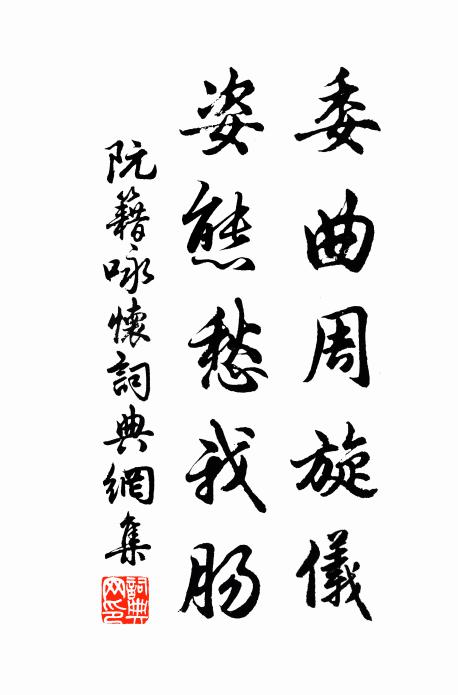 委曲周旋儀
姿態愁我腸
阮籍詠懷詞典網集
詞典網印